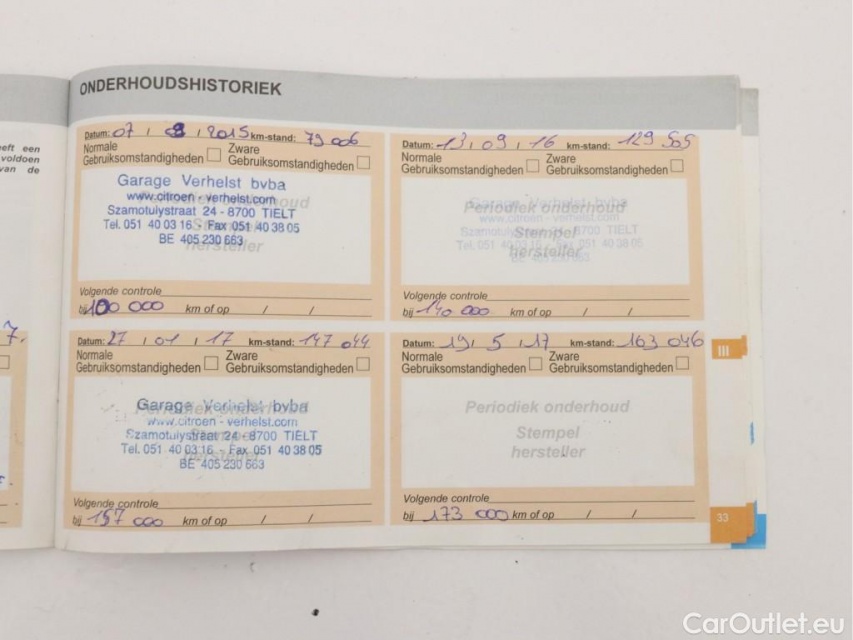 ONDERHOUDSHISTORIEK
eft een
voldoen
van de
7.
Datum: 07 / 09 / 2015 km-stand: 79 006
Normale Gebruiksomstandigheden
Zware Gebruiksomstandigheden
Garage Verhelst bvba
www.citroen-verhelst.com
Szamotulystraat 24 - 8700 TIELT
Tel. 051 40 03 16 - Fax 051 40 38 05
BE 405 230 663
Volgende controle
bij 100 000 km of op / /
Datum: 13 / 09 / 16 km-stand: 129 505
Normale Gebruiksomstandigheden
Zware Gebruiksomstandigheden
Garage Verhelst bvba
Periodiek onderhoud
Stempel
hersteller
Volgende controle
bij 140 000 km of op / /
Datum: 27 / 01 / 17 km-stand: 147 044
Normale Gebruiksomstandigheden
Zware Gebruiksomstandigheden
Garage Verhelst bvba
www.citroen - verhelst.com
Szamotulystraat 24 - 8700 TIELT
Tel. 051 40 03 16 - Fax 051 40 38 05
BE 405 230 663
Volgende controle
bij 157 000 km of op / /
Datum: 19 / 5 / 17 km-stand: 163 046
Normale Gebruiksomstandigheden
Zware Gebruiksomstandigheden
Periodiek onderhoud
Stempel
hersteller
Volgende controle
bij 173 000 km of op / /
III
33
CarOutlet.eu